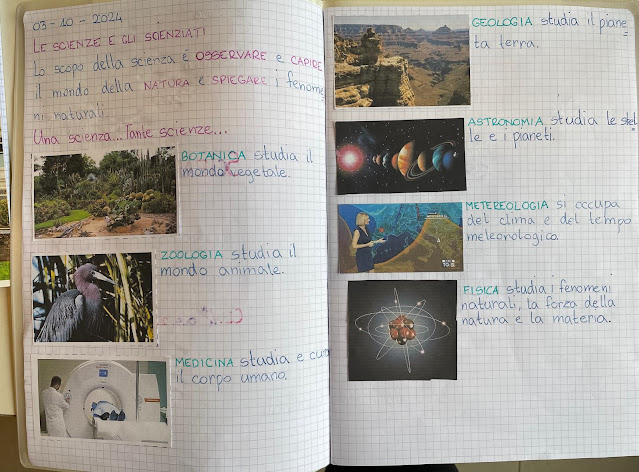 03-10-2024
LE SCIENZE E GLI SCIENZIATI
Lo scopo della scienza é OSSERVARE e CAPIRE
il mondo della NATURA e SPIEGARE i fenome
ni naturali.
Una scienza...Tante scienze...
BOTANICA studia il
mondo vegetale.
ZOOLOGIA studia il
mondo animale.
MEDICINA studia e cura
il corpo umano.
GEOLOGIA studia il piane
ta terra.
ASTRONOMIA studia le stel
le e i pianeti.
METEREOLOGIA si occupa
del clima e del tempo
meteorologico.
FISICA studia i fenomeni
naturali, la forza della
natura e la materia.